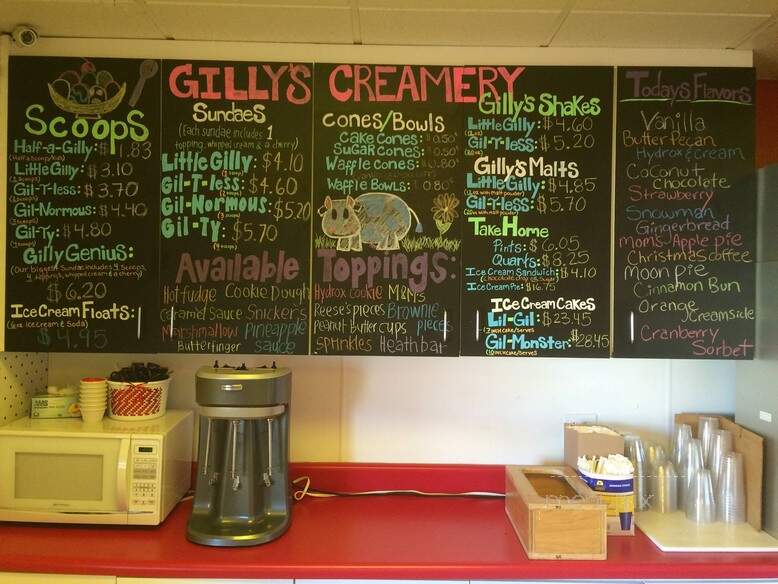 GILLY'S CREAMERY
Scoops
Half-a-Gilly: $1.83
Little Gilly: $3.10
Gil-T-less: $3.70
Gil-Normous: $4.40
Gil-Ty: $4.80
Gilly Genius:
(Our biggest Sundae includes 4 Scoops,
4 toppings, whipped cream & a cherry)
$6.20
Ice Cream Floats:
Ice Cream & Soda)
Sundaes
(Each sundae includes 1
topping, whipped cream & a cherry)
Little Gilly: $4.10
Gil-T-less: $4.60
Gil-Normous: $5.20
Gil-Ty: $5.70
Cones/Bowls
Cake Cones: $0.50
Sugar Cones: 0.50
Waffle Cones: 0.80
Waffle Bowls: 0.80
Available Toppings:
Hot fudge Cookie Dough
Caramel Sauce Snickers
Marshmallow Pineapple
Butterfinger sauce
Hydrox Cookie M&M's
Reese's pieces Brownie
Peanut Butter cups pieces
Sprinkles Heath bar
Gilly's Shakes
Little Gilly: $4.60
Gil-T-less: $5.20
Gilly's Malts
Little Gilly: $4.85
with malt powder)
Gil-T-less: $5.70
with malt powder)
Take Home
Pints: $6.05
Quarts: $8.25
Ice Cream Sandwich: $4.10
(chocolate chip
Ice Cream Pie: $16.75
Ice Cream Cakes
Lil-Gil: $23.45
Gil-Monster: $28.45
Todays Flavors
Vanilla
Butter Pecan
Hydrox & Cream
Coconut
Chocolate
Strawberry
Snowman
Gingerbread
Moms Apple pie
Christmas coffee
Moon pie
Cinnamon Bun
Orange
Creamside
Cranberry
Sorbet